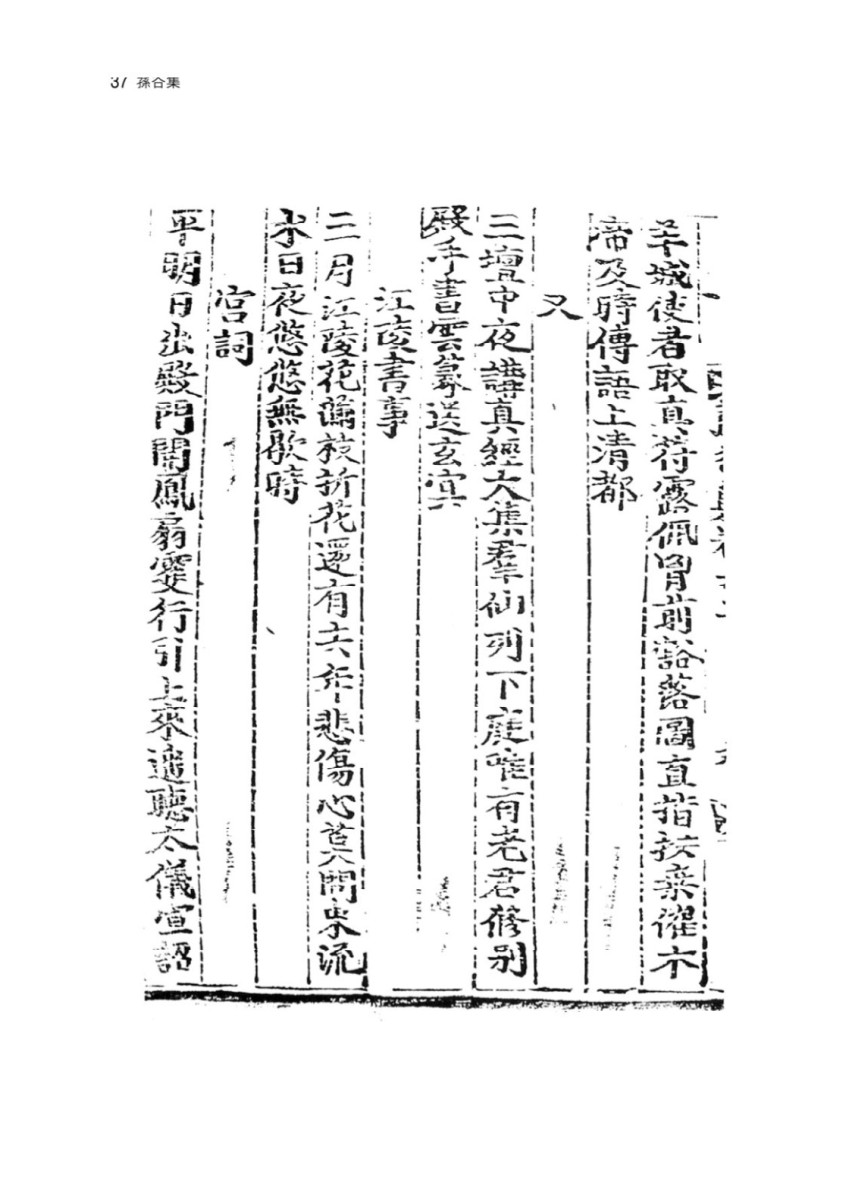 37 孫谷集
羊城使者取真符露佩胷前豁落圖直指扶桑濯木
帝及時傳語上清都
又
三壇中夜講真經大集羣仙列下庭唯有老君修別
殿手書雲篆送玄冥
江陵書事
二月江陵花滿枝折花還有六年悲傷心莫問東流
水日夜悠悠無歇時
宮詞
平明日出殿門開鳳扇雙行引上來遥聽太儀宣詔